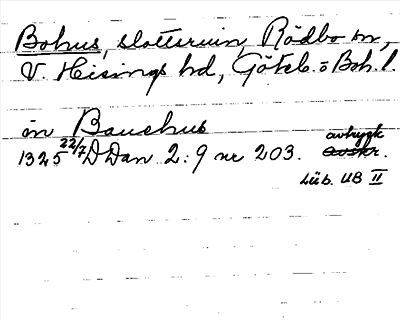 Bohus, slottsruin, Rödbo sn,
V. Hisings hd, Göteb. o Boh. l.
in Bauehus
1325 22/7 DDan 2:9 nr 203. avtryck
Avskr.
Lüb. UB II